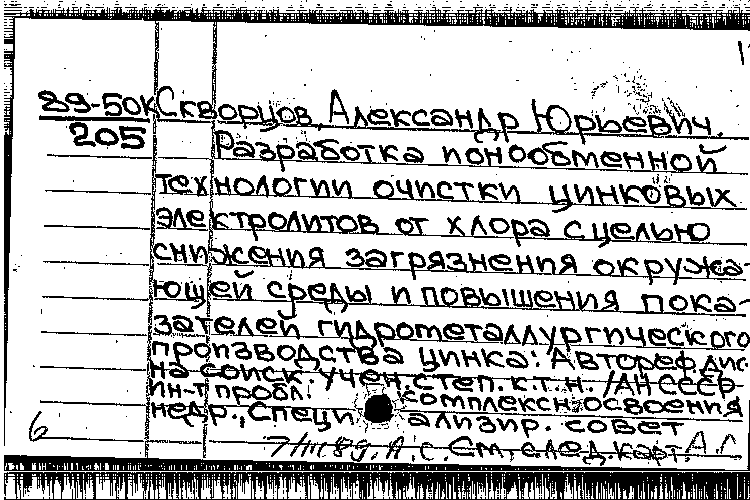 89-50к Скворцов, Александр Юрьевич.
205 Разработка ионообменной
технологии очистки цинковых
электролитов от хлора с целью
снижения загрязнения окружа-
ющей среды и повышения пока-
зателей гидрометаллургического
производства цинка: Автореф. дис.
на соиск. учен. степ. к.т.н. /АН СССР
ин-т пробл. комплексн. освоения
недр., Специализир. совет
6 См. след. карт.